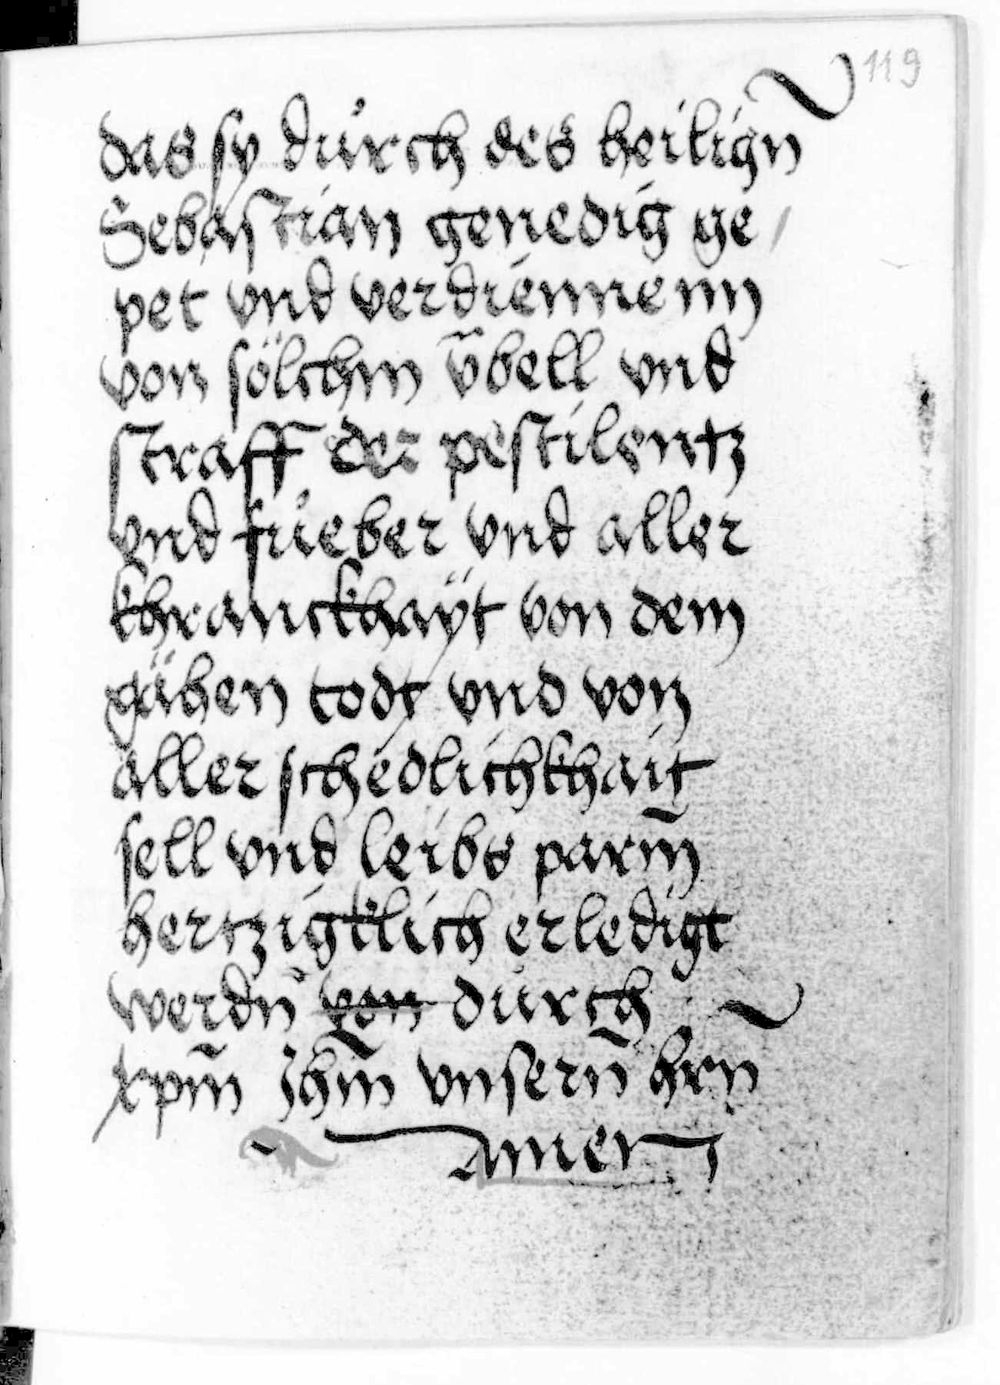 119
das sy durch des heilign
Sebastian genedig ge/
pet vnd verdiennenn
von sölchm v̈bell vnd
straff der pestilentz
vnd fueber vnd aller
khranckhaÿt von dem
gähen todt vnd von
aller schedlichkhait
sell vnd leibs parm̄
hertzigklich erledigt
werdn von durch
xpm̄ Jhm̄ vnsern̄ hrn̄
Amen